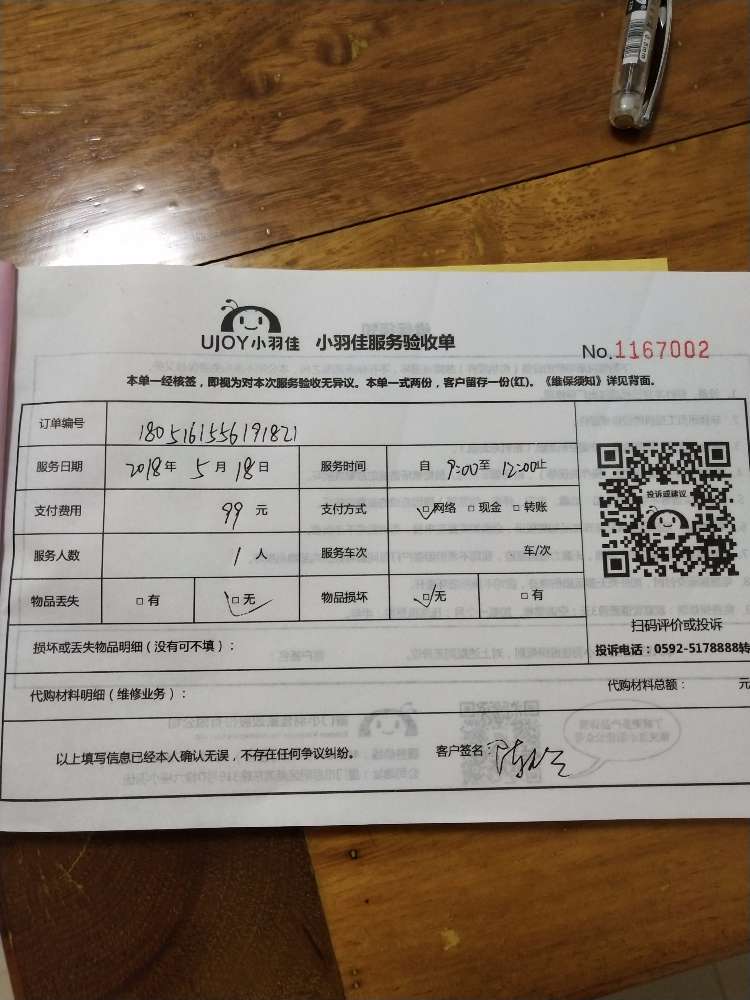 UJOY小羽佳 小羽佳服务验收单
No.1167002
本单一经核签，即视为对本次服务验收无异议。本单一式两份，客户留存一份(红)。《维保须知》详见背面。
订单编号 1805161556191821
服务日期 2018年 5月18日 服务时间 自 9:00至 12:00止
支付费用 99 元 支付方式 □网络 □现金 □转账
服务人数 1 人 服务车次 车/次
物品丢失 □有 □无 物品损坏 □无 □有
投诉或建议
扫码评价或投诉
投诉电话：0592-5178888转
损坏或丢失物品明细（没有可不填）：
代购材料明细（维修业务）： 代购材料总额： 元
以上填写信息已经本人确认无误，不存在任何争议纠纷。 客户签名：